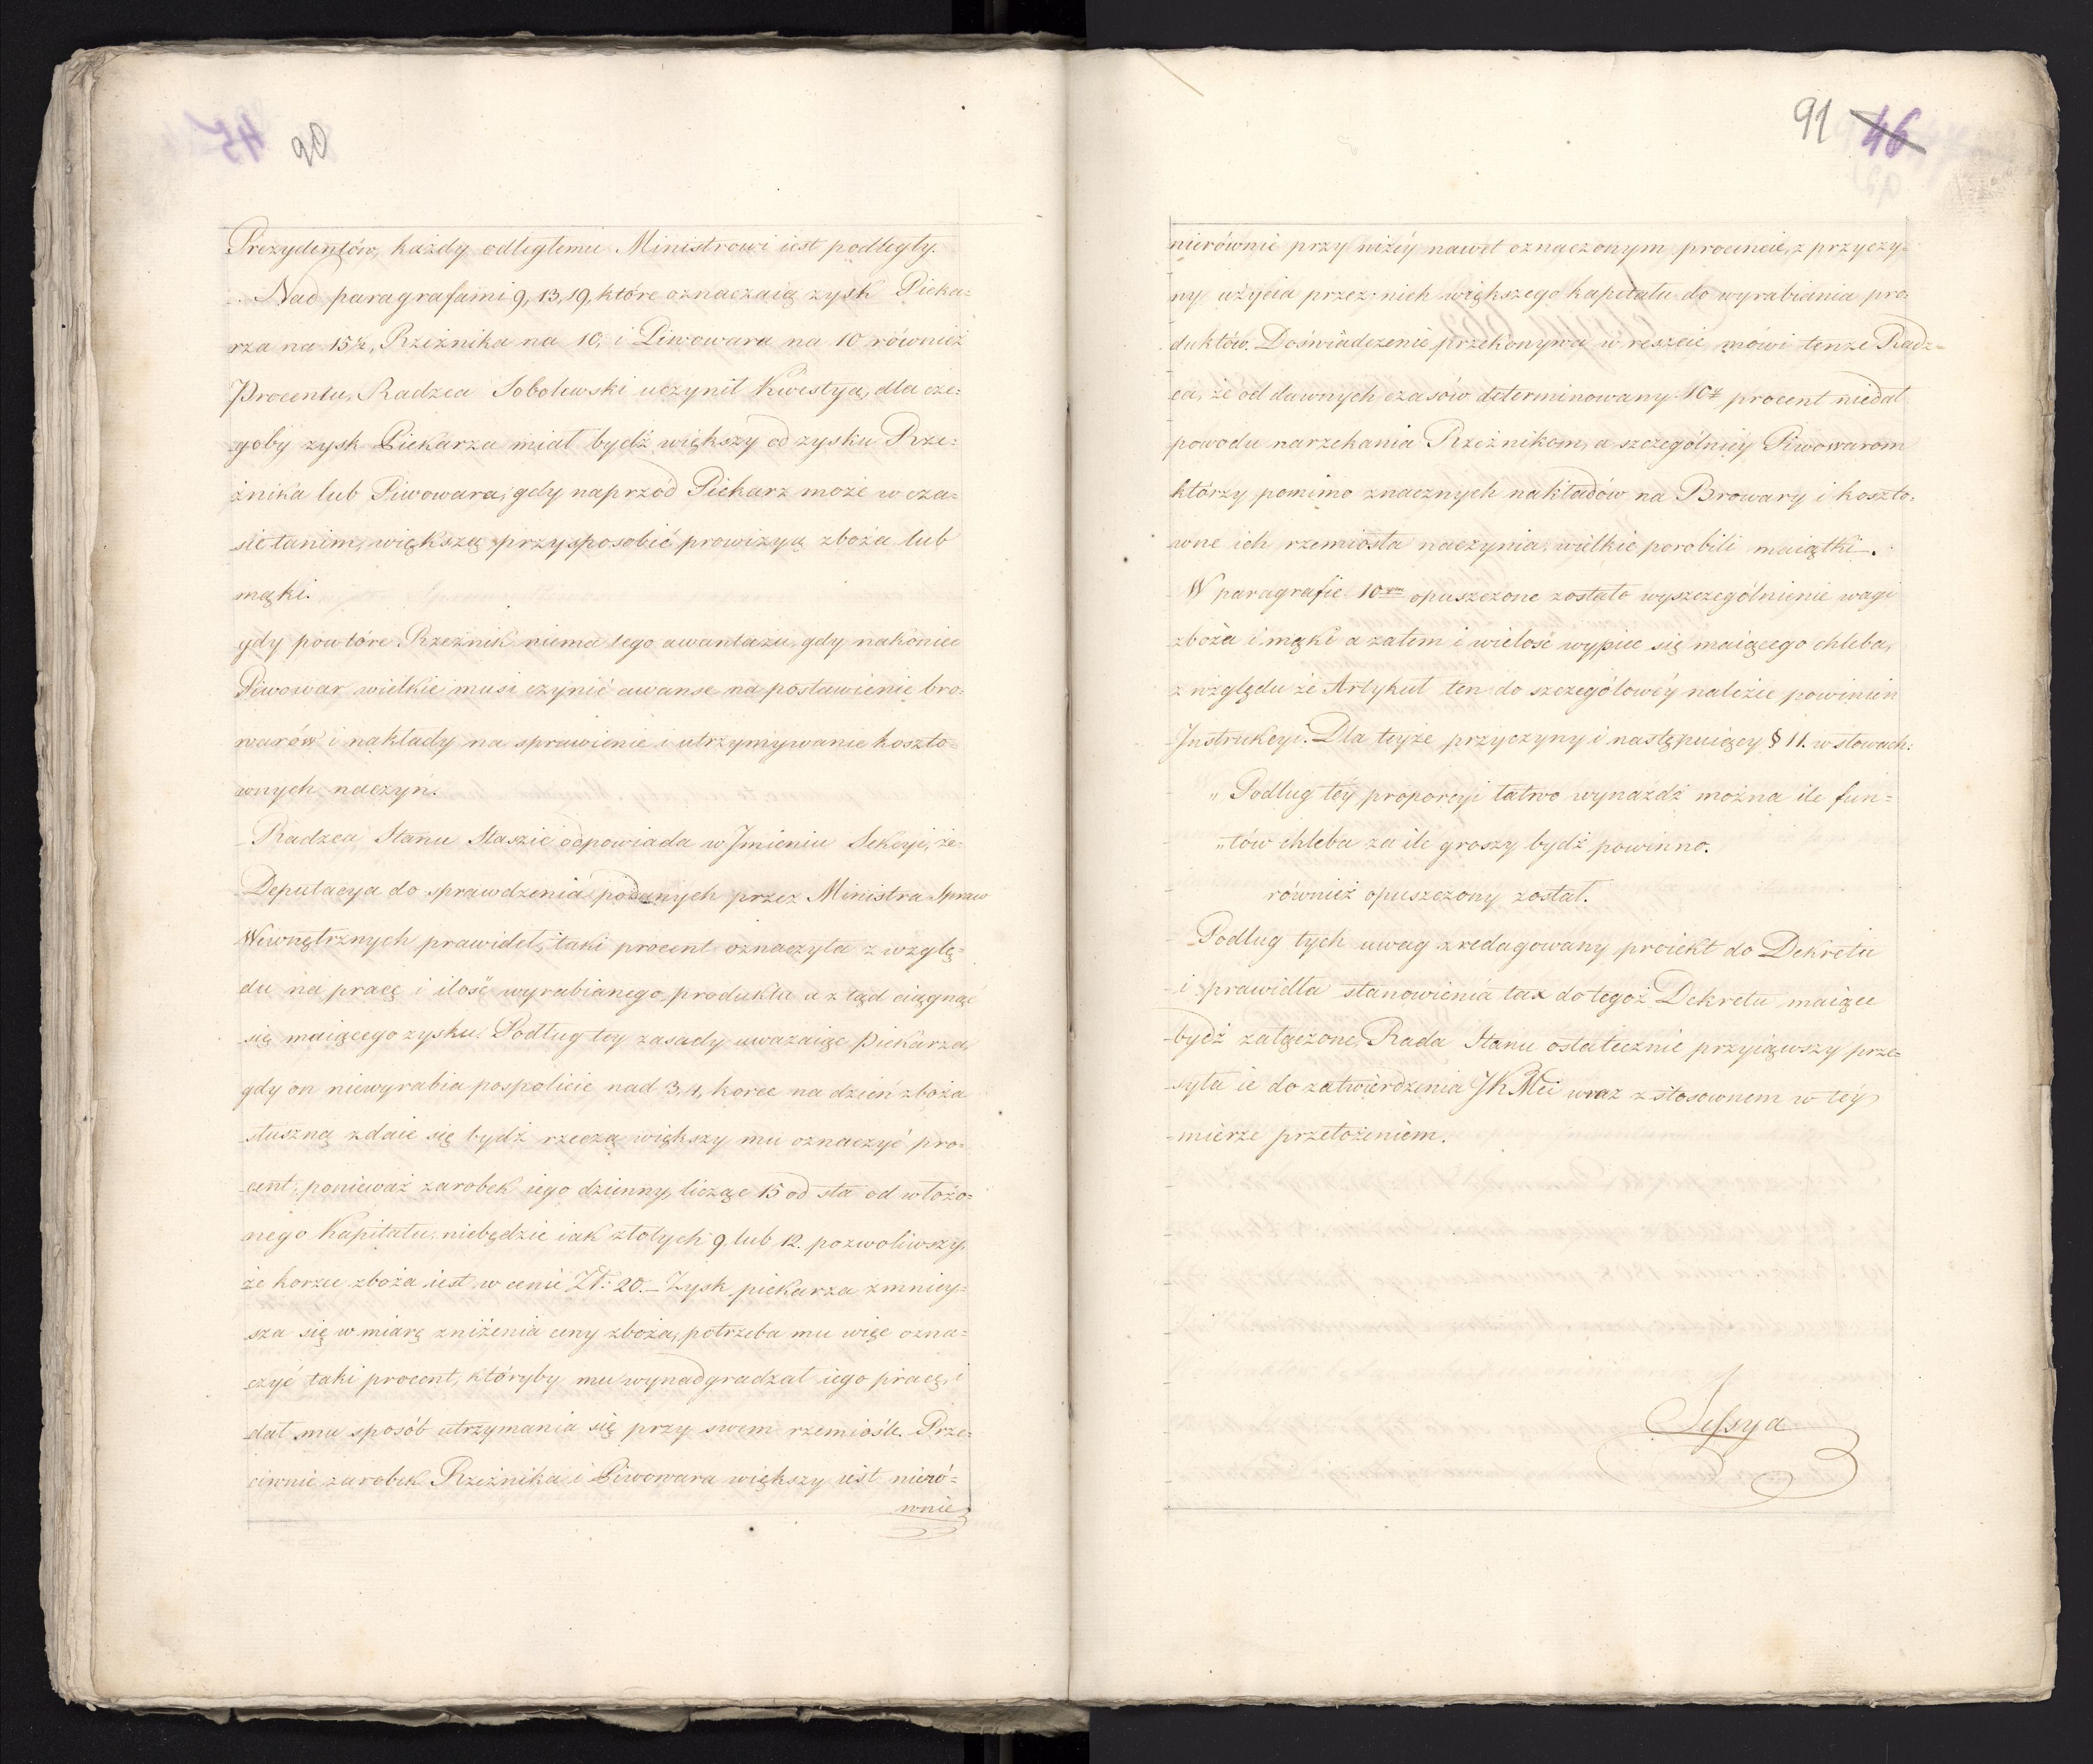 90
Prezydentów, każdy odległemu Ministrowi iest podległy.
Nad paragrafami 9, 13, 19, które oznaczaią zysk Pieka=
rza na 15%, Rzeźnika na 10, i Piwowara na 10 również
Procentu, Radzca Sobolewski uczynił Kwestyą, dla cze=
goby zysk Piekarza miał bydź większy od zysku Rze=
źnika lub Piwowara, gdy naprzód Piekarz może w cza=
sie tanim, większą przysposobić prowizyą zboża lub
mąki.
gdy powtóre Rzeźnik niema tego awantażu, gdy nakoniec
Piwowar wielkie musi czynić awanse na postawienie bro=
warów i nakłady na sprawienie i utrzymywanie koszto=
wnych naczyń.
Radzca Stanu Staszic odpowiada w Jmieniu Sekcyi, że
Deputacya do sprawdzenia podanych przez Ministra Spraw
Wewnętrznych prawideł, taki procent oznaczyła z wzglę=
du na pracę i ilość wyrabianego produktu a z tąd ciągnąć
się maiącego zysku. Podług tey zasady uważaiąc Piekarza,
gdy on niewyrabia pospolicie nad 3, 4, korce na dzień zboża
słuszną zdaie się bydź rzeczą większy mu oznaczyć pro=
cent, ponieważ zarobek iego dzienny, licząc 15 od sta od włożo=
nego Kapitału, niebędzie iak złotych 9 lub 12. pozwoliwszy,
że korzec zboża iest w cenie Zł: 20.– Zysk piekarza zmniey=
sza się w miarę zniżenia ceny zboża, potrzeba mu więc ozna=
czyć taki procent, któryby mu wynadgradzał iego pracę, i
dał mu sposób utrzymania się przy swem rzemiośle. Prze=
ciwnie zarobek Rzeźnika i Piwowara większy iest nieró=
wnie
91 46
nierównie przy niżéy nawet oznaczonym procencie, z przyczy=
ny użycia przez nich większego kapitału do wyrabiania pro=
duktów. Doświadczenie przekonywa w reszcie mówi tenże Radz=
ca, że od dawnych czasów determinowany 10ty procent niedał
powodu narzekania Rzeźnikom, a szczególniey Piwowarom
którzy pomimo znacznych nakładów na Browary i koszto=
wne ich rzemiosła naczynia, wielkie porobili maiątki.
W paragrafie 10m opuszczone zostało wyszczególnienie wagi
zboża i mąki a zatem i wielość wypiec się maiącego chleba,
z względu że Artykuł ten do szczegółowéy należeć powinien
Jnstrukcyi. Dla teyże przyczyny i następuiący § 11. w słowach:
„Podług téy proporcyi łatwo wynaźdź można ile fun=
„tów chleba za ile groszy bydź powinno.
również opuszczony został.
Podług tych uwag zredagowany proiekt do Dekretu
i prawidła stanowienia tax do tegoż Dekretu maiące
bydź załączone, Rada Stanu ostatecznie przyiąwszy prze=
syła ie do zatwierdzenia JKMci wraz z stosownem w téy
mierze przełożeniem.
Sessya